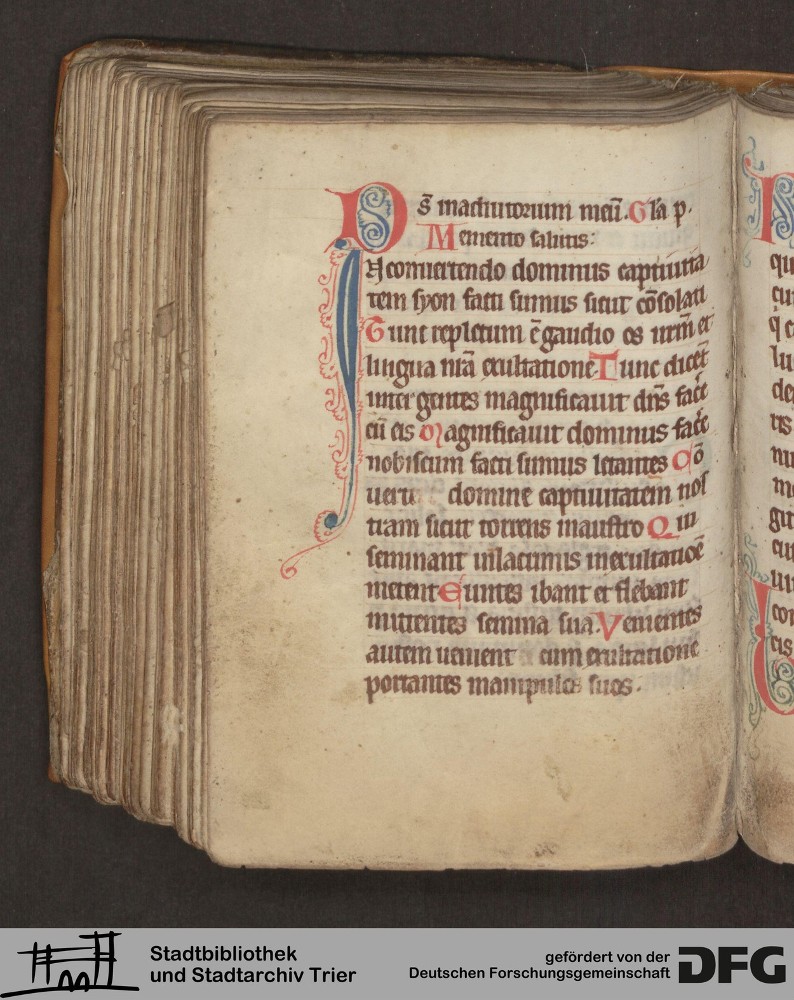 Ds̄ in adiutorium meū. Gl̄a p̄.
Memento salutis:
In conuertendo dominus captiuita
tem syon facti sumus sicut cōsolati
Tunc repletum ē gaudio os nr̄m et
lingua nr̄a exultatione Tunc dicēt
inter gentes magnificauit dn̄s fac̄e
cū eis Magnificauit dominus fac̄e
nobiscum facti sumus letantes Cō
uerte domine captiuitatem nos
tram sicut torrens in austro Qui
seminant in lacrimis in exultatiōe
metent Euntes ibant et flebant
mittentes semina sua. Venientes
autem uenient cum exultatione
portantes manipulos suos.
qu
cu
lu
de
tis
nu
me
git
cu
uu
cor
cis
Stadtbibliothek
und Stadtarchiv Trier
gefördert von der
Deutschen Forschungsgemeinschaft
DFG